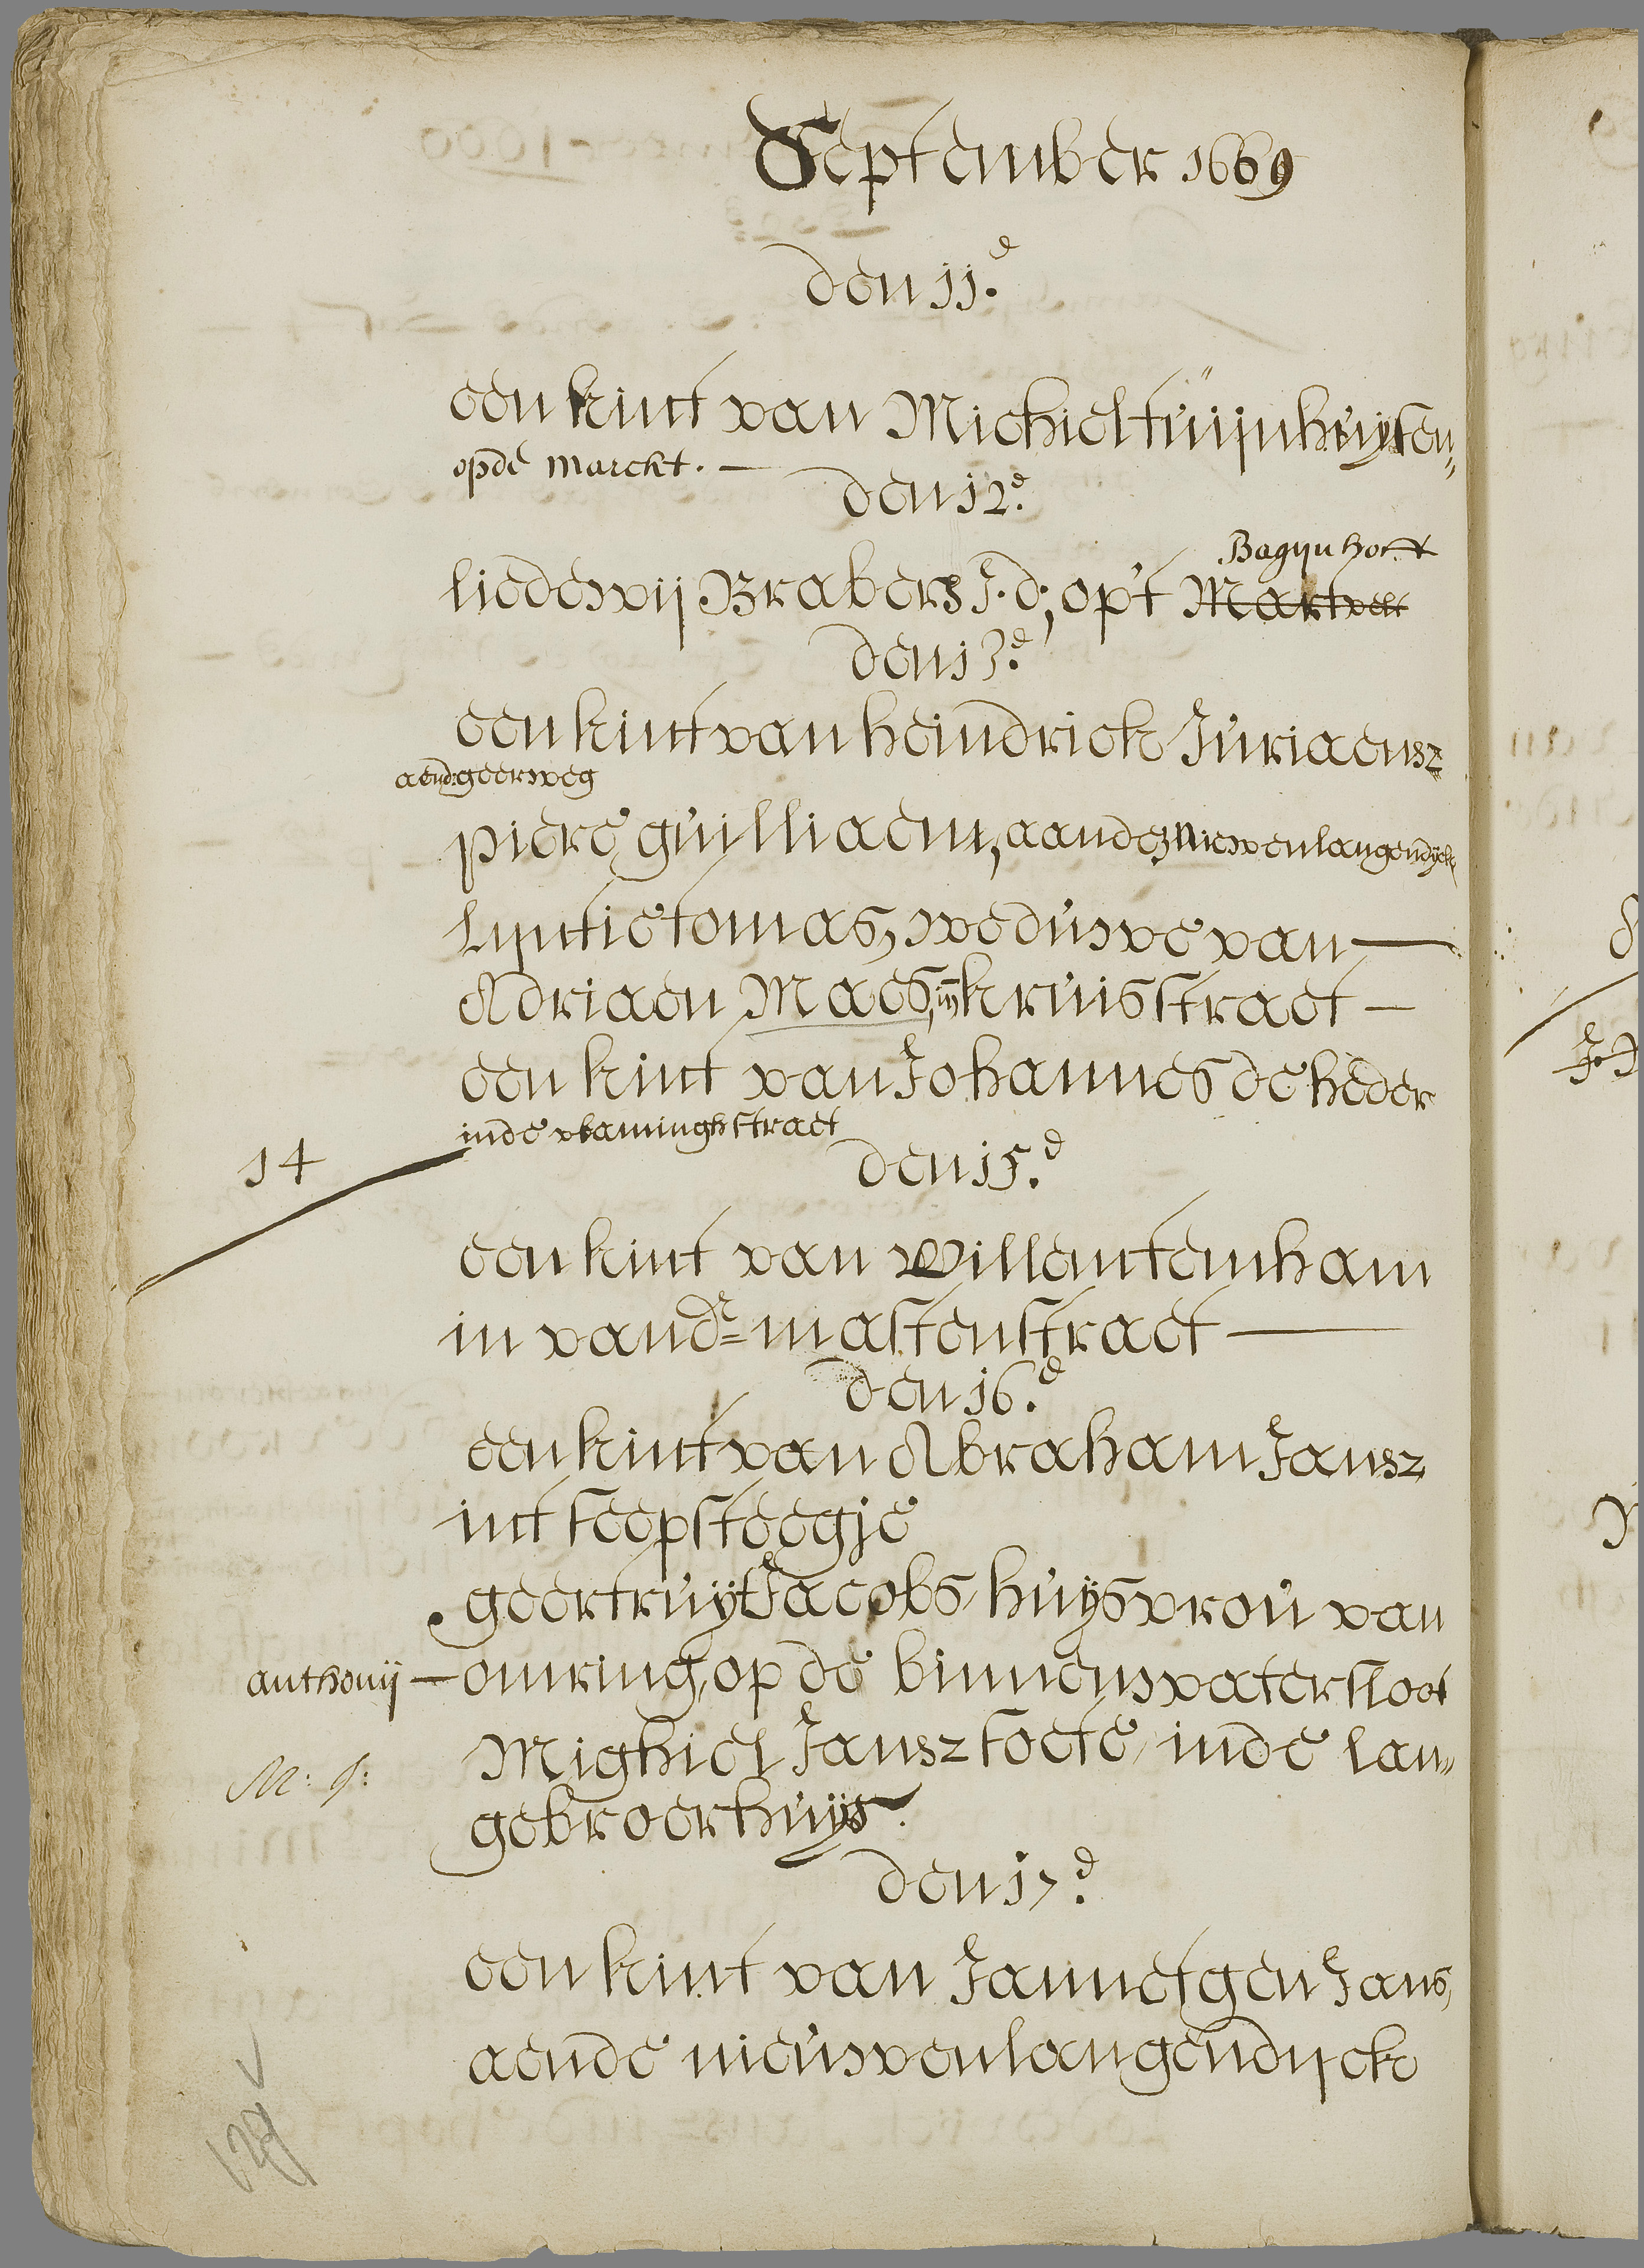 September 1669
den 11.d
een kint van Michiel tuijnhuijsen
opde marckt.
den 12.d
Bagijnhoff
liedewij Brabers J.d; op't Martvelt
den 13.d
een kint van heindrick Juriaensz
aend geerweg
piere guilliaem, aande niewenlangendijck
lijntie tomas, weduwe van
Adriaen Maes, int kruisstraet
een kint van Johannes de heder
inde vlaminghstraet
14
den 15.d
een kint van Willem ten ham
in vandr mastenstraet
den 16.d
een kint van Abraham Jansz
int seepsteegje
geertruijt Jacobs, huijsvrou van
anthonij omring, op de binnenwatersloot
M: f: Mighiel Jansz soete, inde lan
gebroerhuijs.
den 17.d
een kint van Jannetgen Jans,
aende nieuwenlangendijck